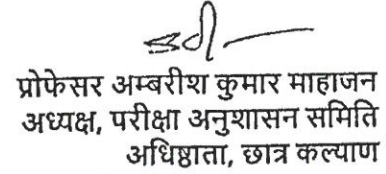 प्रोफेसर अम्बरीश कुमार माहाजन
अध्यक्ष, परीक्षा अनुशासन समिति
अधिष्ठाता, छात्र कल्याण